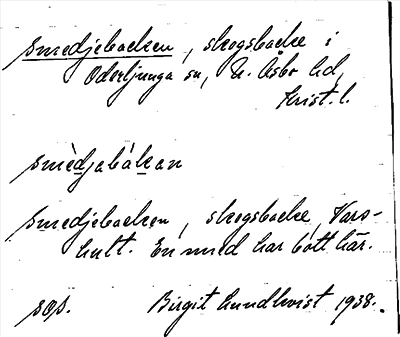 Smedjebacken, skogsbacke i
Oderljunga sn, N. Åsbo hd,
Krist. l.
smèdjabákan
Smedjebacken, skogsbacke, Vars-
hult. En smed har bott här.
sos. Birgit Lundkvist 1938.